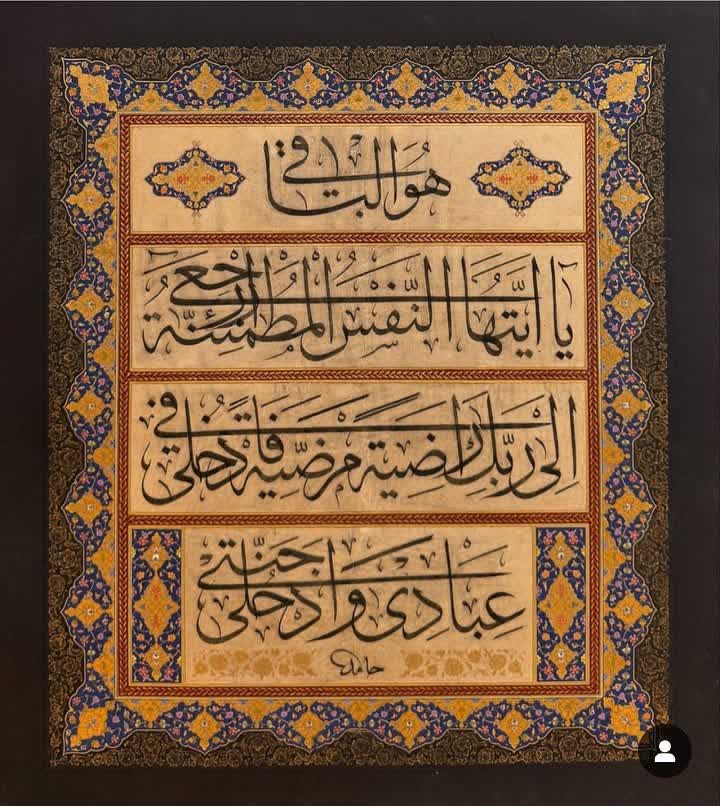 هُوَ الْبَاقِي
يَا اَيَّتُهَا النَّفْسُ الْمُطْمَئِنَّةُ ارْجِعِي
اِلَى رَبِّكِ رَاضِيَةً مَرْضِيَّةً فَادْخُلِي فِي
عِبَادِي وَادْخُلِي جَنَّتِي
حامد